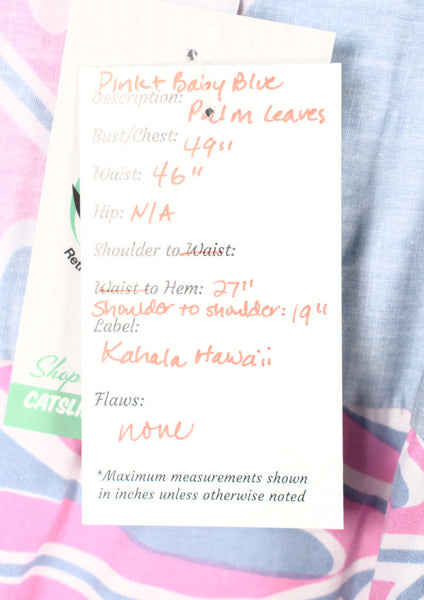 Pink + Baby Blue
Description: Palm Leaves
Bust/Chest: 49"
Waist: 46"
Hip: N/A
Shoulder to Waist:
Waist to Hem: 27"
Shoulder to shoulder: 19"
Label:
Kahala Hawaii
Flaws:
none
*Maximum measurements shown
in inches unless otherwise noted
Shop